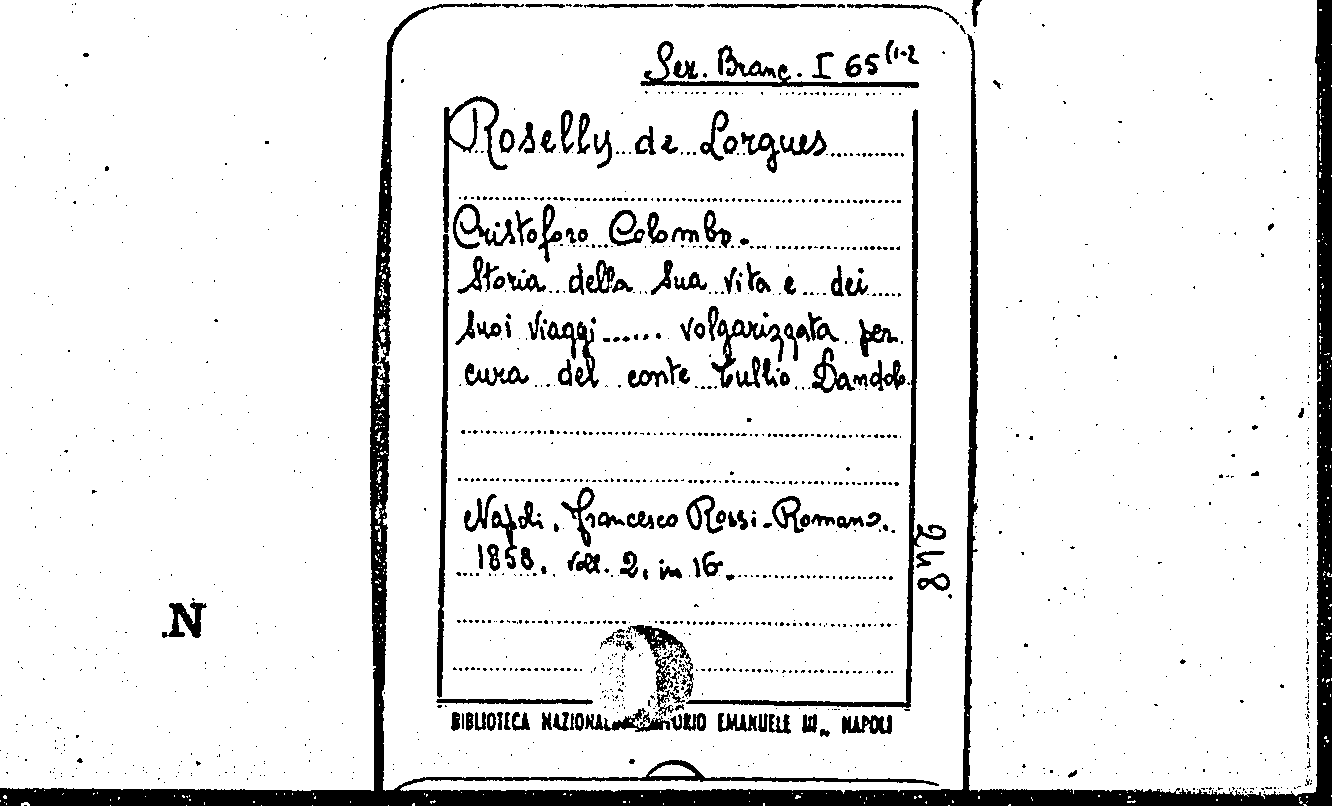 Sez. Branc. I 65 (1-2
Roselly de Lorgues
Cristoforo Colombo.
Storia della sua vita e dei
suoi viaggi ...... volgarizzata per
cura del conte Tullio Dandolo
Napoli, Francesco Rossi-Romano.
1858. voll. 2. in 16.
248
N
BIBLIOTECA NAZIONALE EMANUELE III„ NAPOLI